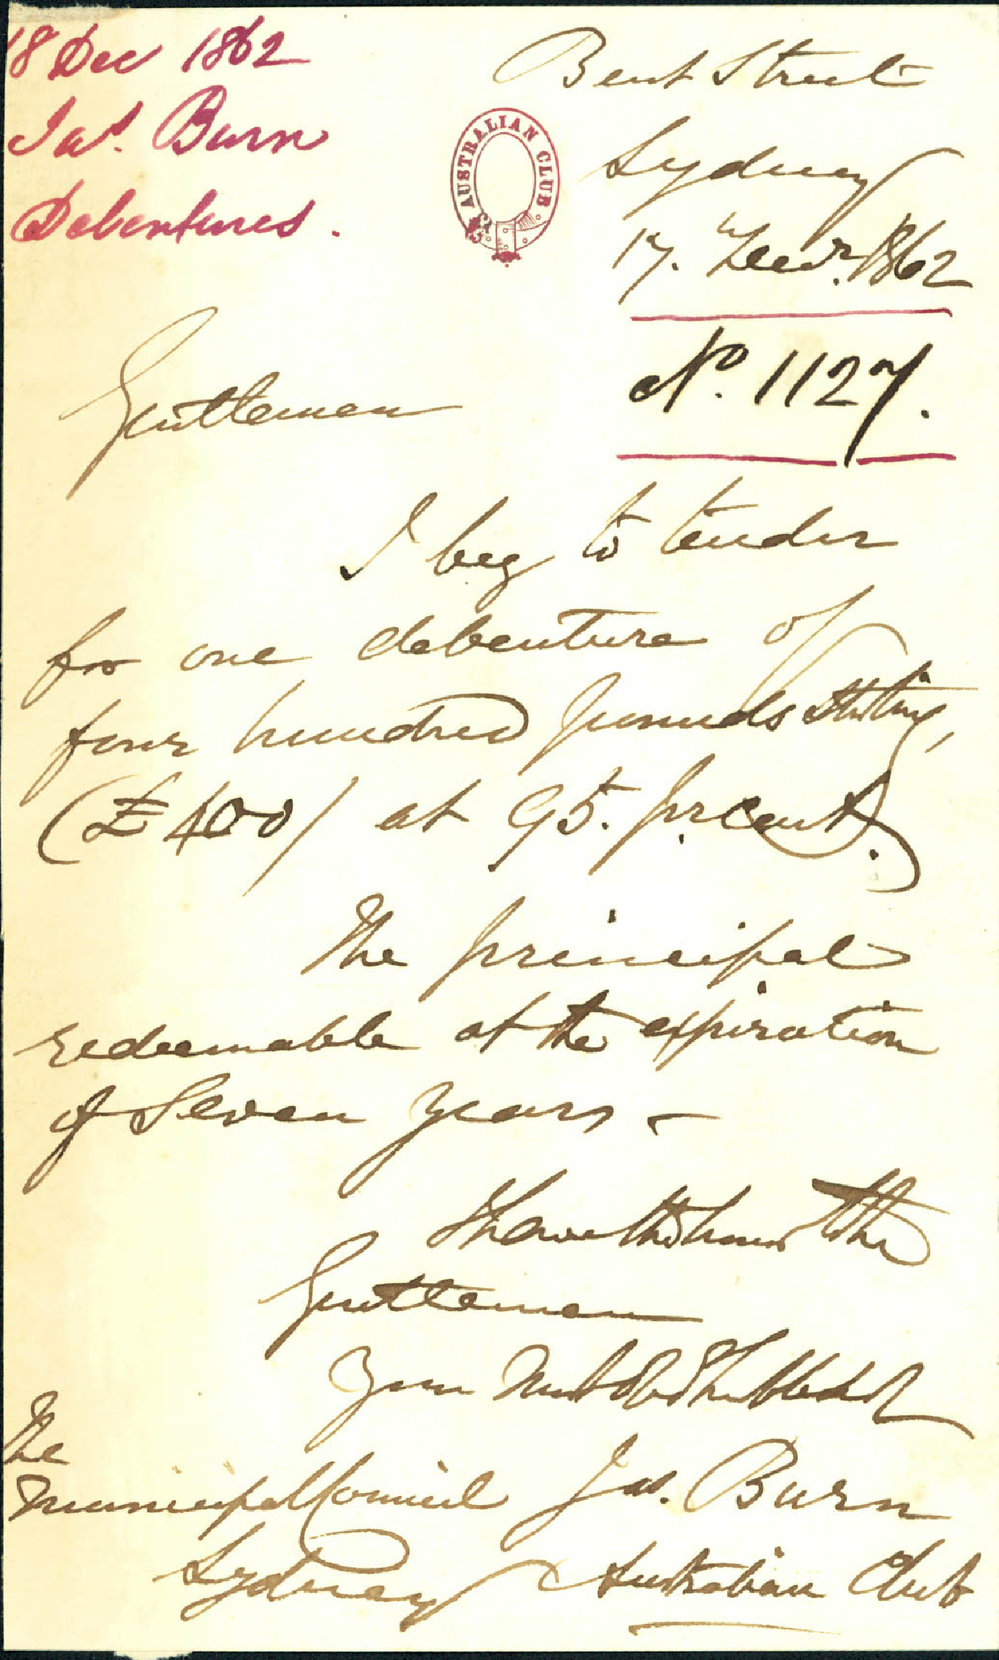 18 Dec 1862
Jas. Burn
Debentures.
AUSTRALIAN CLUB
Bent Street
Sydney
17. Decr. 1862
No. 1127.
Gentlemen
I beg to tender
for one debenture of
four hundred pounds Sterling,
(£400) at 95. pr. cent.
The principal
redeemable at the expiration
of Seven Years –
I have the honor to be
Gentlemen
Your Most Obt Humble Set
Jas. Burn
Australian Club
The
Municipal Council
Sydney